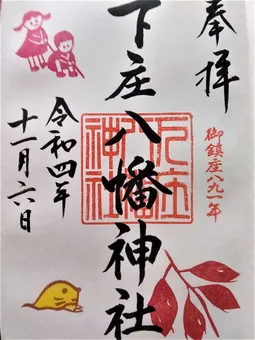 奉拝
御鎮座八九一年
下庄八幡神社
令和四年
十一月六日